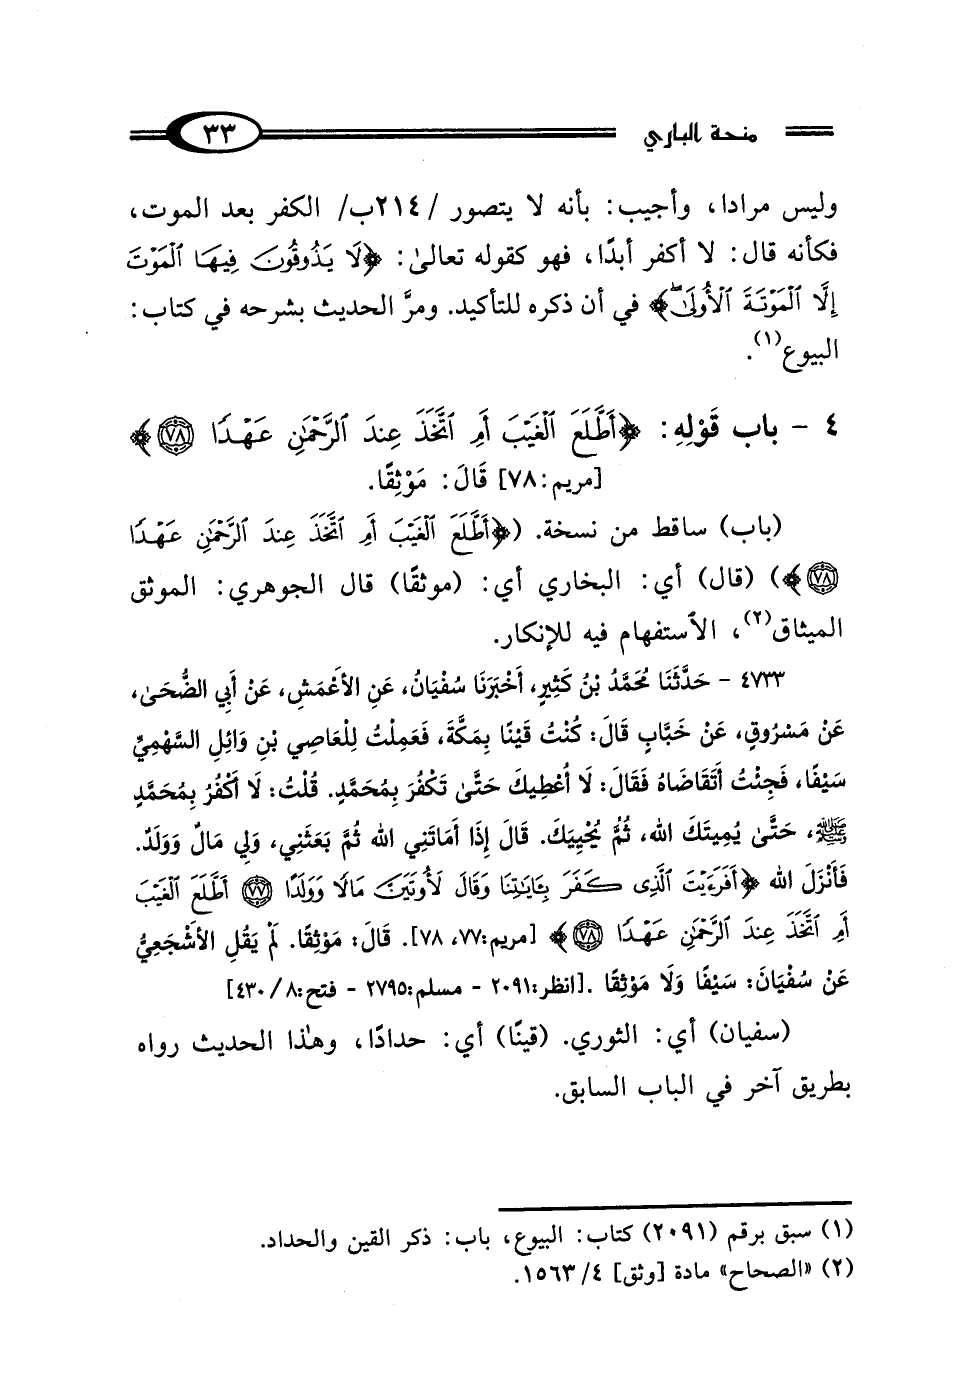 منحة الباري ٣٣
وليس مرادا، وأجيب: بأنه لا يتصور /٢١٤ب/ الكفر بعد الموت،
فكأنه قال: لا أكفر أبدًا، فهو كقوله تعالىٰ: ﴿لَا يَذُوقُونَ فِيهَا ٱلْمَوْتَ
إِلَّا ٱلْمَوْتَةَ ٱلْأُولَىٰ﴾ في أن ذكره للتأكيد. ومرَّ الحديث بشرحه في كتاب:
البيوع(١).
٤ - باب قَوْلِهِ: ﴿أَطَّلَعَ ٱلْغَيْبَ أَمِ ٱتَّخَذَ عِندَ ٱلرَّحْمَٰنِ عَهْدًا ٧٨﴾
[مريم:٧٨] قَالَ: مَوْثِقًا.
(باب) ساقط من نسخة. (﴿أَطَّلَعَ ٱلْغَيْبَ أَمِ ٱتَّخَذَ عِندَ ٱلرَّحْمَٰنِ عَهْدًا
٧٨﴾) (قال) أي: البخاري أي: (موثقًا) قال الجوهري: الموثق
الميثاق(٢)، الٱستفهام فيه للإنكار.
٤٧٣٣ - حَدَّثَنَا مُحَمَّدُ بْنُ كَثِيرٍ، أَخْبَرَنَا سُفْيَانُ، عَنِ الأَعْمَشِ، عَنْ أَبِي الضُّحَىٰ،
عَنْ مَسْرُوقٍ، عَنْ خَبَّابٍ قَالَ: كُنْتُ قَيْنًا بِمَكَّةَ، فَعَمِلْتُ لِلْعَاصِي بْنِ وَائِلِ السَّهْمِيِّ
سَيْفًا، فَجِئْتُ أَتَقَاضَاهُ فَقَالَ: لَا أُعْطِيكَ حَتَّىٰ تَكْفُرَ بِمُحَمَّدٍ. قُلْتُ: لَا أَكْفُرُ بِمُحَمَّدٍ
ﷺ، حَتَّىٰ يُمِيتَكَ الله، ثُمَّ يُحْيِيَكَ. قَالَ إِذَا أَمَاتَنِي الله ثُمَّ بَعَثَنِي، وَلِي مَالٌ وَوَلَدٌ.
فَأَنْزَلَ الله ﴿أَفَرَءَيْتَ ٱلَّذِى كَفَرَ بِـَٔايَٰتِنَا وَقَالَ لَأُوتَيَنَّ مَالًا وَوَلَدًا ٧٧ أَطَّلَعَ ٱلْغَيْبَ
أَمِ ٱتَّخَذَ عِندَ ٱلرَّحْمَٰنِ عَهْدًا ٧٨﴾ [مريم:٧٧، ٧٨]. قَالَ: مَوْثِقًا. لَمْ يَقُلِ الأَشْجَعِيُّ
عَنْ سُفْيَانَ: سَيْفًا وَلَا مَوْثِقًا .[انظر:٢٠٩١ - مسلم:٢٧٩٥ - فتح:٨/ ٤٣٠]
(سفيان) أي: الثوري. (قينًا) أي: حدادًا، وهٰذا الحديث رواه
بطريق آخر في الباب السابق.
(١) سبق برقم (٢٠٩١) كتاب: البيوع، باب: ذكر القين والحداد.
(٢) «الصحاح» مادة [وثق] ٤/ ١٥٦٣.